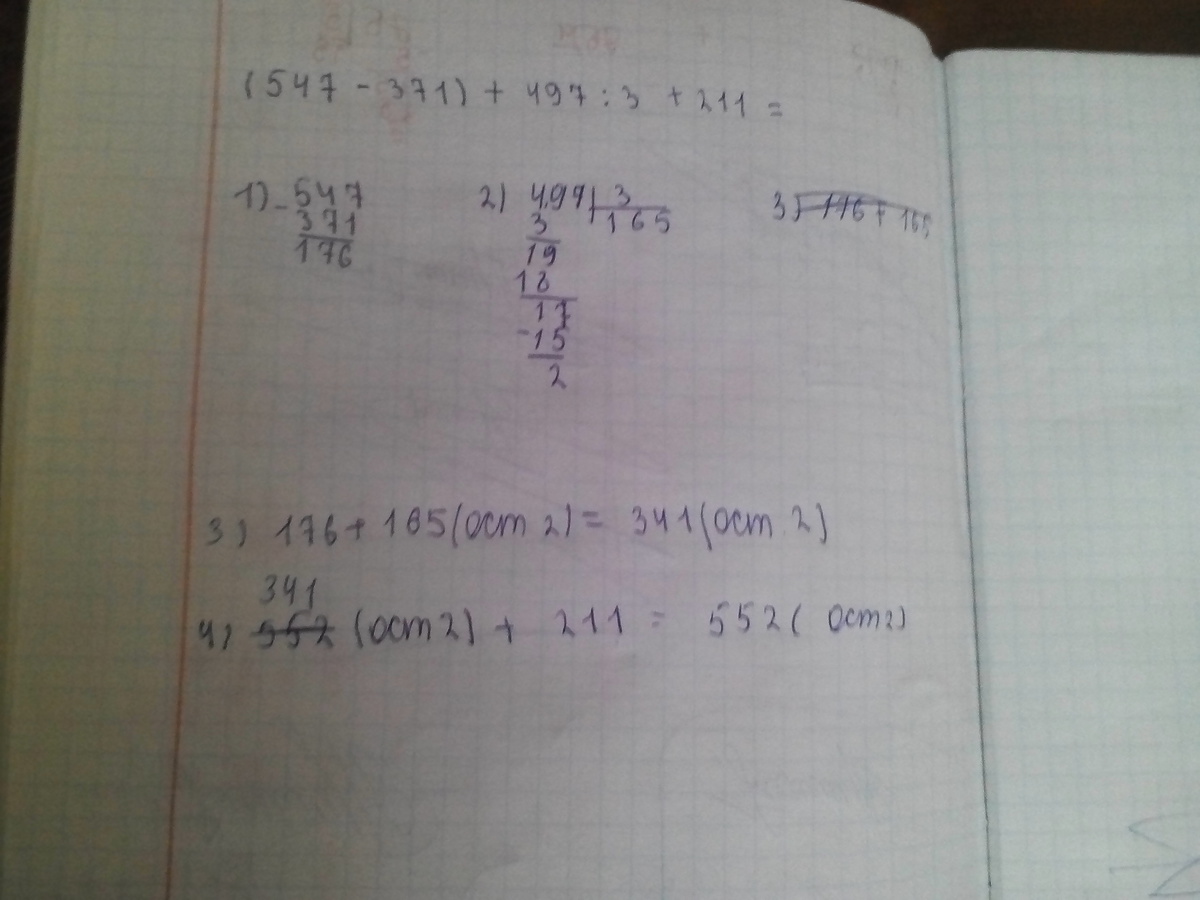 (547 - 371) + 497 : 3 + 211 =
1) - 547
371
176
2) 497 | 3
165
3
19
18
17
- 15
2
3) 176 + 165
3) 176 + 165 (ост 2) = 341 (ост 2)
341
4) 552 (ост 2) + 211 = 552 (ост 2)